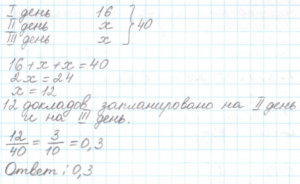 I день 16
II день х } 40
III день х
16 + х + х = 40
2х = 24
х = 12
12 докладов запланировано на II день
и на III день.
12/40 = 3/10 = 0,3
Ответ: 0,3